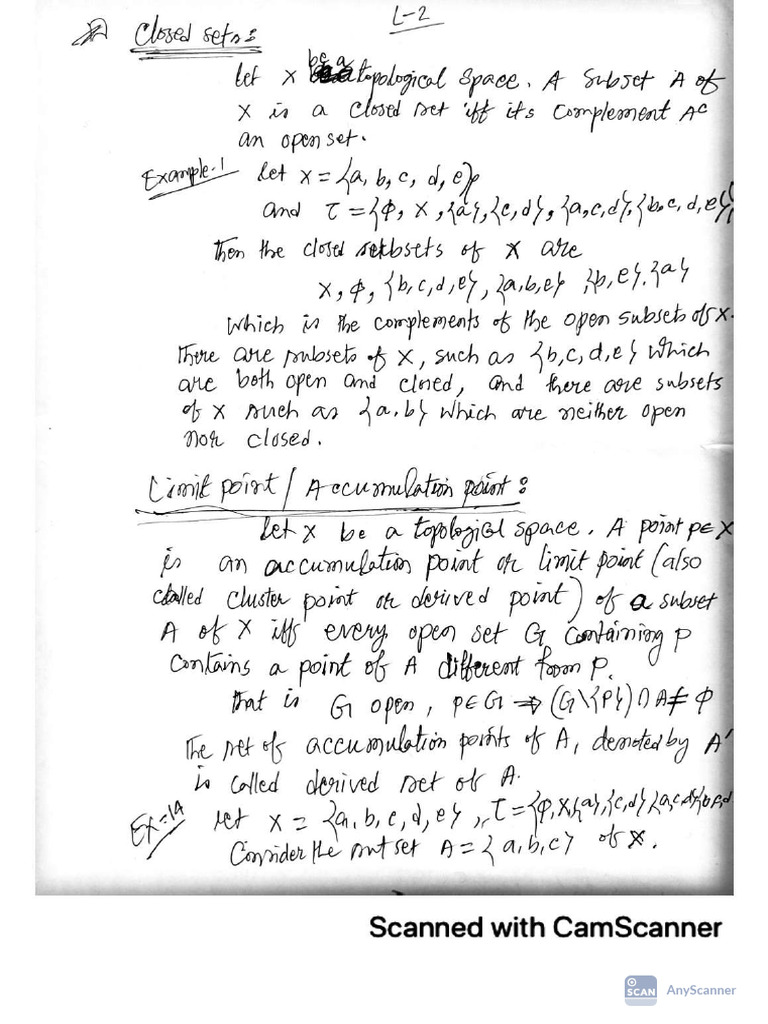 L-2
Closed sets:
Let X be a topological space. A subset A of
X is a closed set iff its complement Aᶜ
an open set.
Example-1 Let X = {a, b, c, d, e}
and τ = {φ, X, {a}, {c, d}, {a, c, d}, {b, c, d, e}}
Then the closed subsets of X are
X, φ, {b, c, d, e}, {a, b, e} {b, e}, {a}
Which is the complements of the open subsets of X.
There are subsets of X, such as {b, c, d, e} which
are both open and closed, and there are subsets
of X such as {a, b} which are neither open
nor closed.
Limit point / Accumulation point:
Let X be a topological space. A point p∈X
is an accumulation point or limit point (also
called cluster point or derived point) of a subset
A of X iff every open set G containing p
contains a point of A different from p.
That is G open, p∈G ⇒ (G\{P}) ∩ A ≠ φ
The set of accumulation points of A, denoted by A'
is called derived set of A.
Ex-14 Let X = {a, b, c, d, e}, τ = {φ, X, {a}, {c, d} {a, c, d} {b, c, d
Consider the subset A = {a, b, c} of X.
Scanned with CamScanner
SCAN AnyScanner